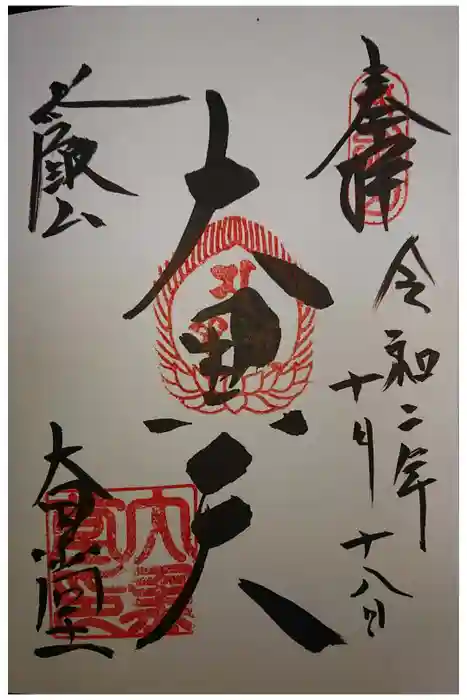 奉拝
令和二年
十月十八日
大黒天
比叡山
大黒堂